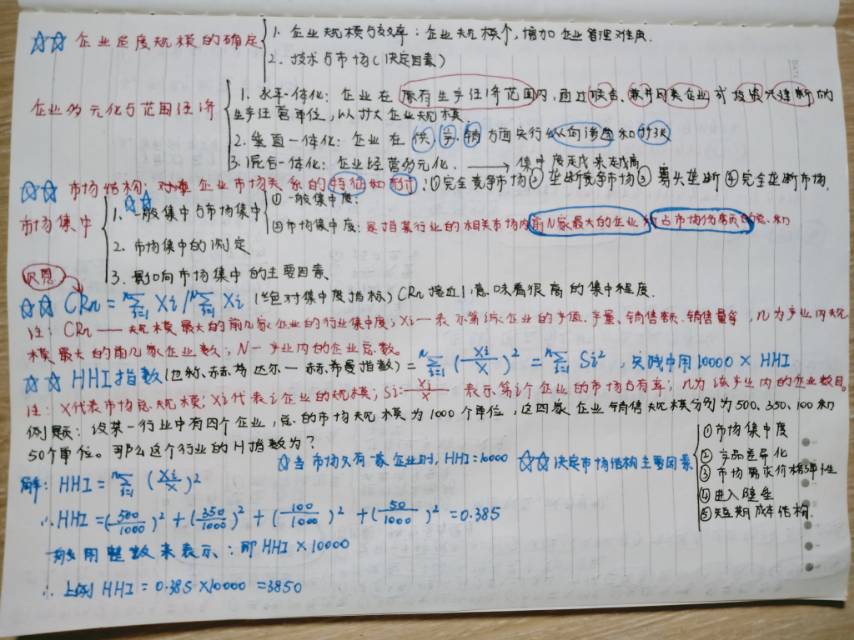 ☆☆ 企业适度规模的确定 1. 企业规模与效率:企业规模个,增加企业管理难度.
2. 技术与市场(决定因素)
企业多元化与范围经济 1. 水平一体化:企业在原有生产经济范围内,通过联合、兼并同类企业或投资兴建新的
生产经营单位,以扩大企业规模.
2. 垂直一体化:企业在供、产、销方面实行纵向渗透和扩张
3. 混合一体化:企业经营多元化. → 集中度越来越高
☆☆ 市场结构:企业市场关系的特征和形式:①完全竞争市场②垄断竞争市场③寡头垄断④完全垄断市场.
市场集中 1. 一般集中与市场集中 ①一般集中度:
②市场集中度:是指某行业的相关市场内前N家最大的企业所占市场份额的总和
2. 市场集中的测定
3. 影响市场集中的主要因素.
☆☆ CRn = ⁿΣᵢ₌₁ Xi / ᴺΣᵢ₌₁ Xi (绝对集中度指标) CRn接近1,意味着很高的集中程度.
注:CRn——规模最大的前几家企业的行业集中度;Xi—表示第i家企业的产值、产量、销售额、销售量等,n为产业内规
模最大的前几家企业数;N—产业内的企业总数.
☆☆ HHI指数(也称:赫芬达尔—赫希曼指数) = ᴺΣᵢ₌₁ (Xi/X)² = ᴺΣᵢ₌₁ Si²,实践中用10000×HHI
注:X代表市场总规模;Xi代表i企业的规模;Si=Xi/X 表示第i个企业的市场占有率;n为该产业内的企业数目.
例题:设某一行业中有四个企业,总的市场规模为1000个单位,这四家企业销售规模分别为500、350、100和
50个单位。那么这个行业的H指数为?
☆当市场只有一家企业时,HHI=10000
☆☆ 决定市场结构主要因素 ①市场集中度
②产品差异化
③市场需求价格弹性
④进入壁垒
⑤短期成本结构.
解:HHI = ⁿΣᵢ₌₁ (Xi/X)²
∴HHI = (500/1000)² + (350/1000)² + (100/1000)² + (50/1000)² = 0.385
一般用整数来表示:即HHI×10000
∴上例HHI = 0.385×10000 = 3850